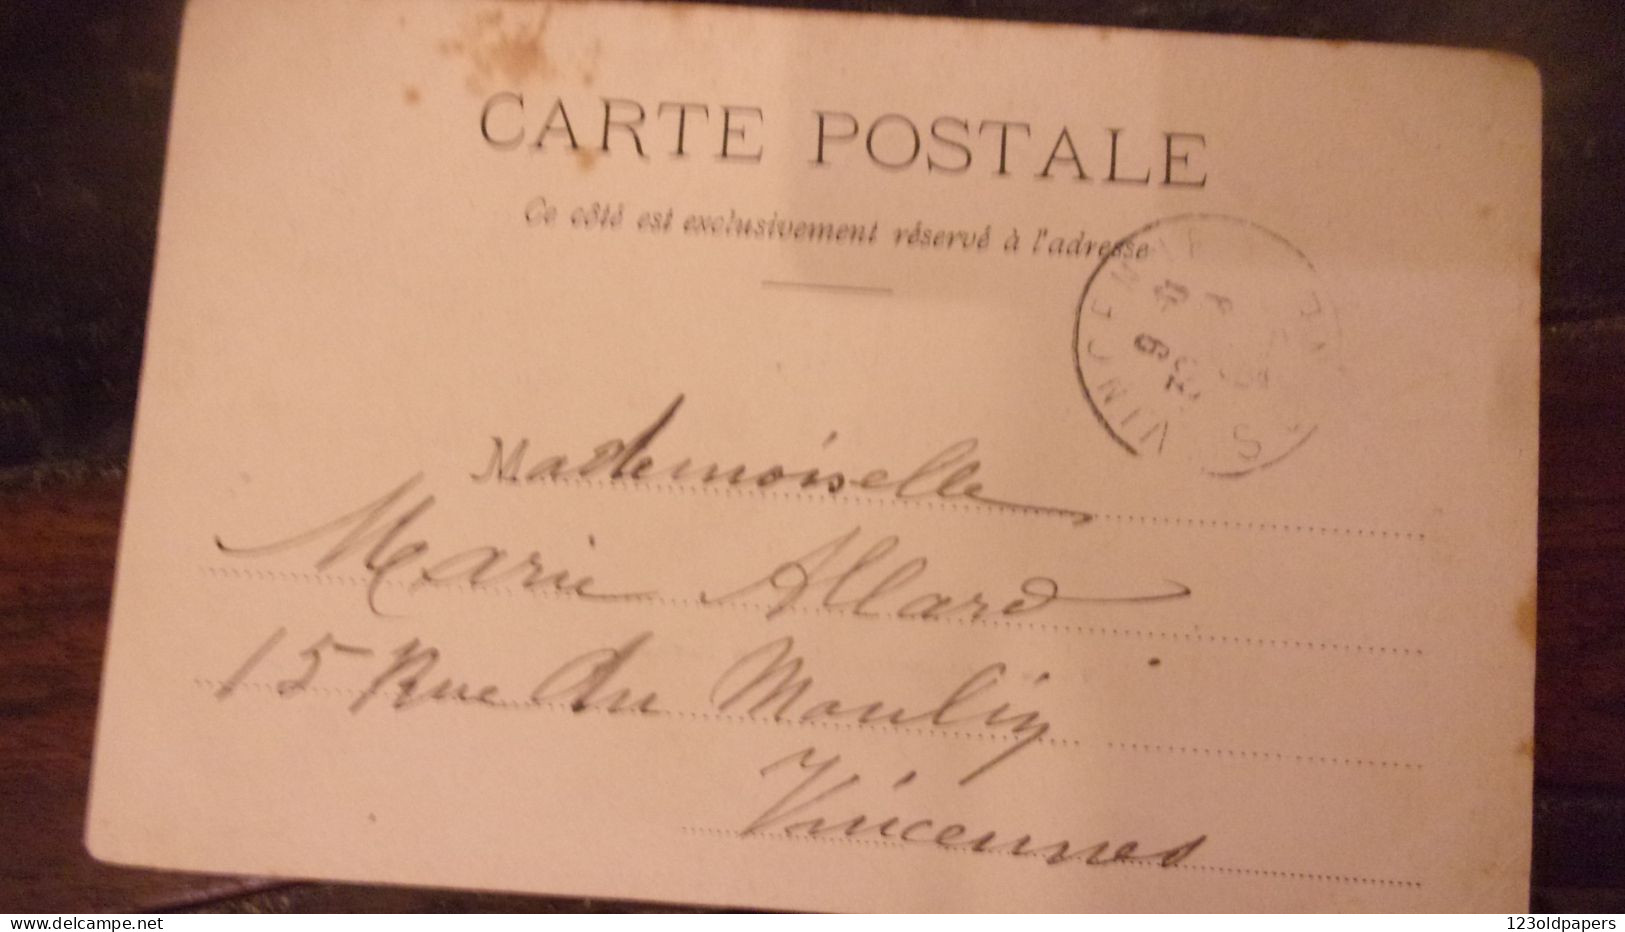 CARTE POSTALE
Ce côté est exclusivement réservé à l'adresse
VINCENNES
Mademoiselle
Marie Allard
15 Rue du Moulin
Vincennes
Delcampe.net
123oldpapers